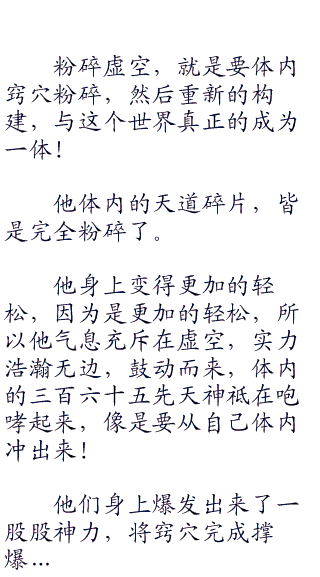 粉碎虚空，就是要体内
窍穴粉碎，然后重新的构
建，与这个世界真正的成为
一体！
他体内的天道碎片，皆
是完全粉碎了。
他身上变得更加的轻
松，因为是更加的轻松，所
以他气息充斥在虚空，实力
浩瀚无边，鼓动而来，体内
的三百六十五先天神祇在咆
哮起来，像是要从自己体内
冲出来！
他们身上爆发出来了一
股股神力，将窍穴完成撑
爆…